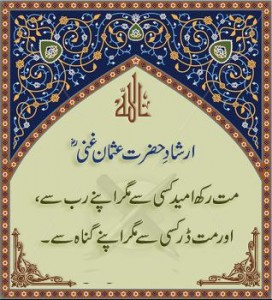 الله
ارشادِ حضرت عثمان غنیؓ
مت رکھ امید کسی سے مگر اپنے رب سے،
اور مت ڈر کسی سے مگر اپنے گناہ سے۔